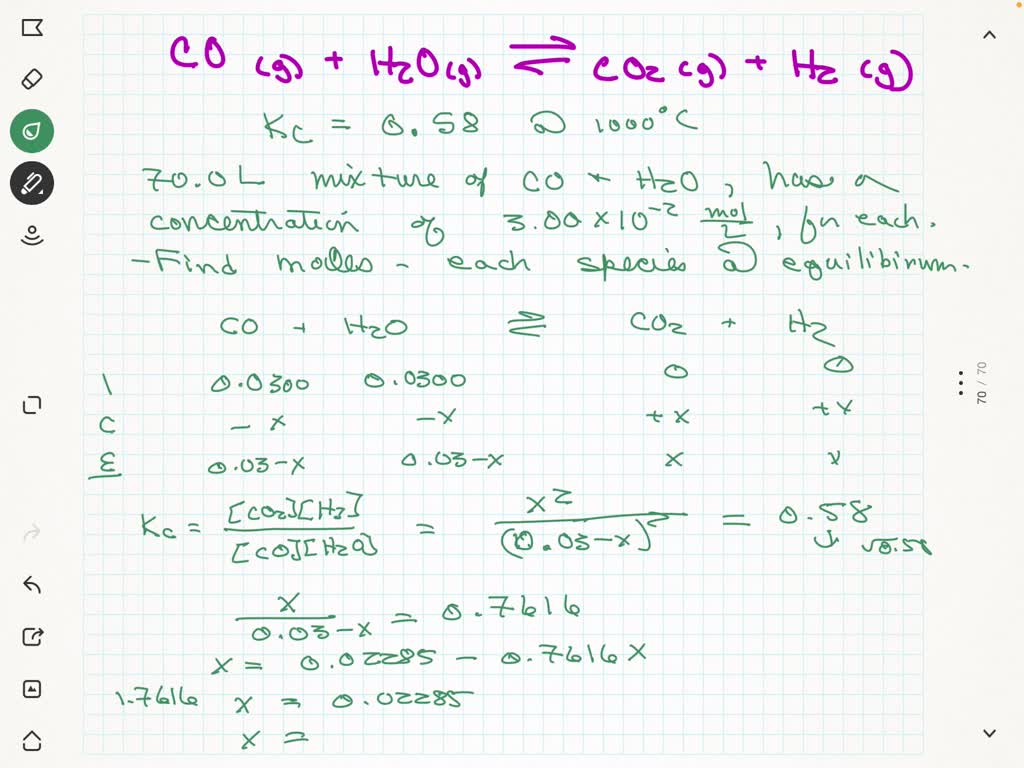 CO (g) + H2O(g) ⇌ CO2 (g) + H2 (g)
Kc = 0.58 @ 1000°C
70.0L mixture of CO + H2O, has a
concentration of 3.00 × 10^-2 mol/L, for each.
- Find moles - each species @ equilibirum.
CO + H2O ⇌ CO2 + H2
I 0.0300 0.0300 0 0
C - x - x + x + x
E 0.03-x 0.03-x x x
Kc = [CO2][H2] / [CO][H2O] = x² / (0.03-x)² = 0.58
√0.58
x / 0.03-x = 0.7616
x = 0.02285 - 0.7616 x
1.7616 x = 0.02285
x =
70 / 70